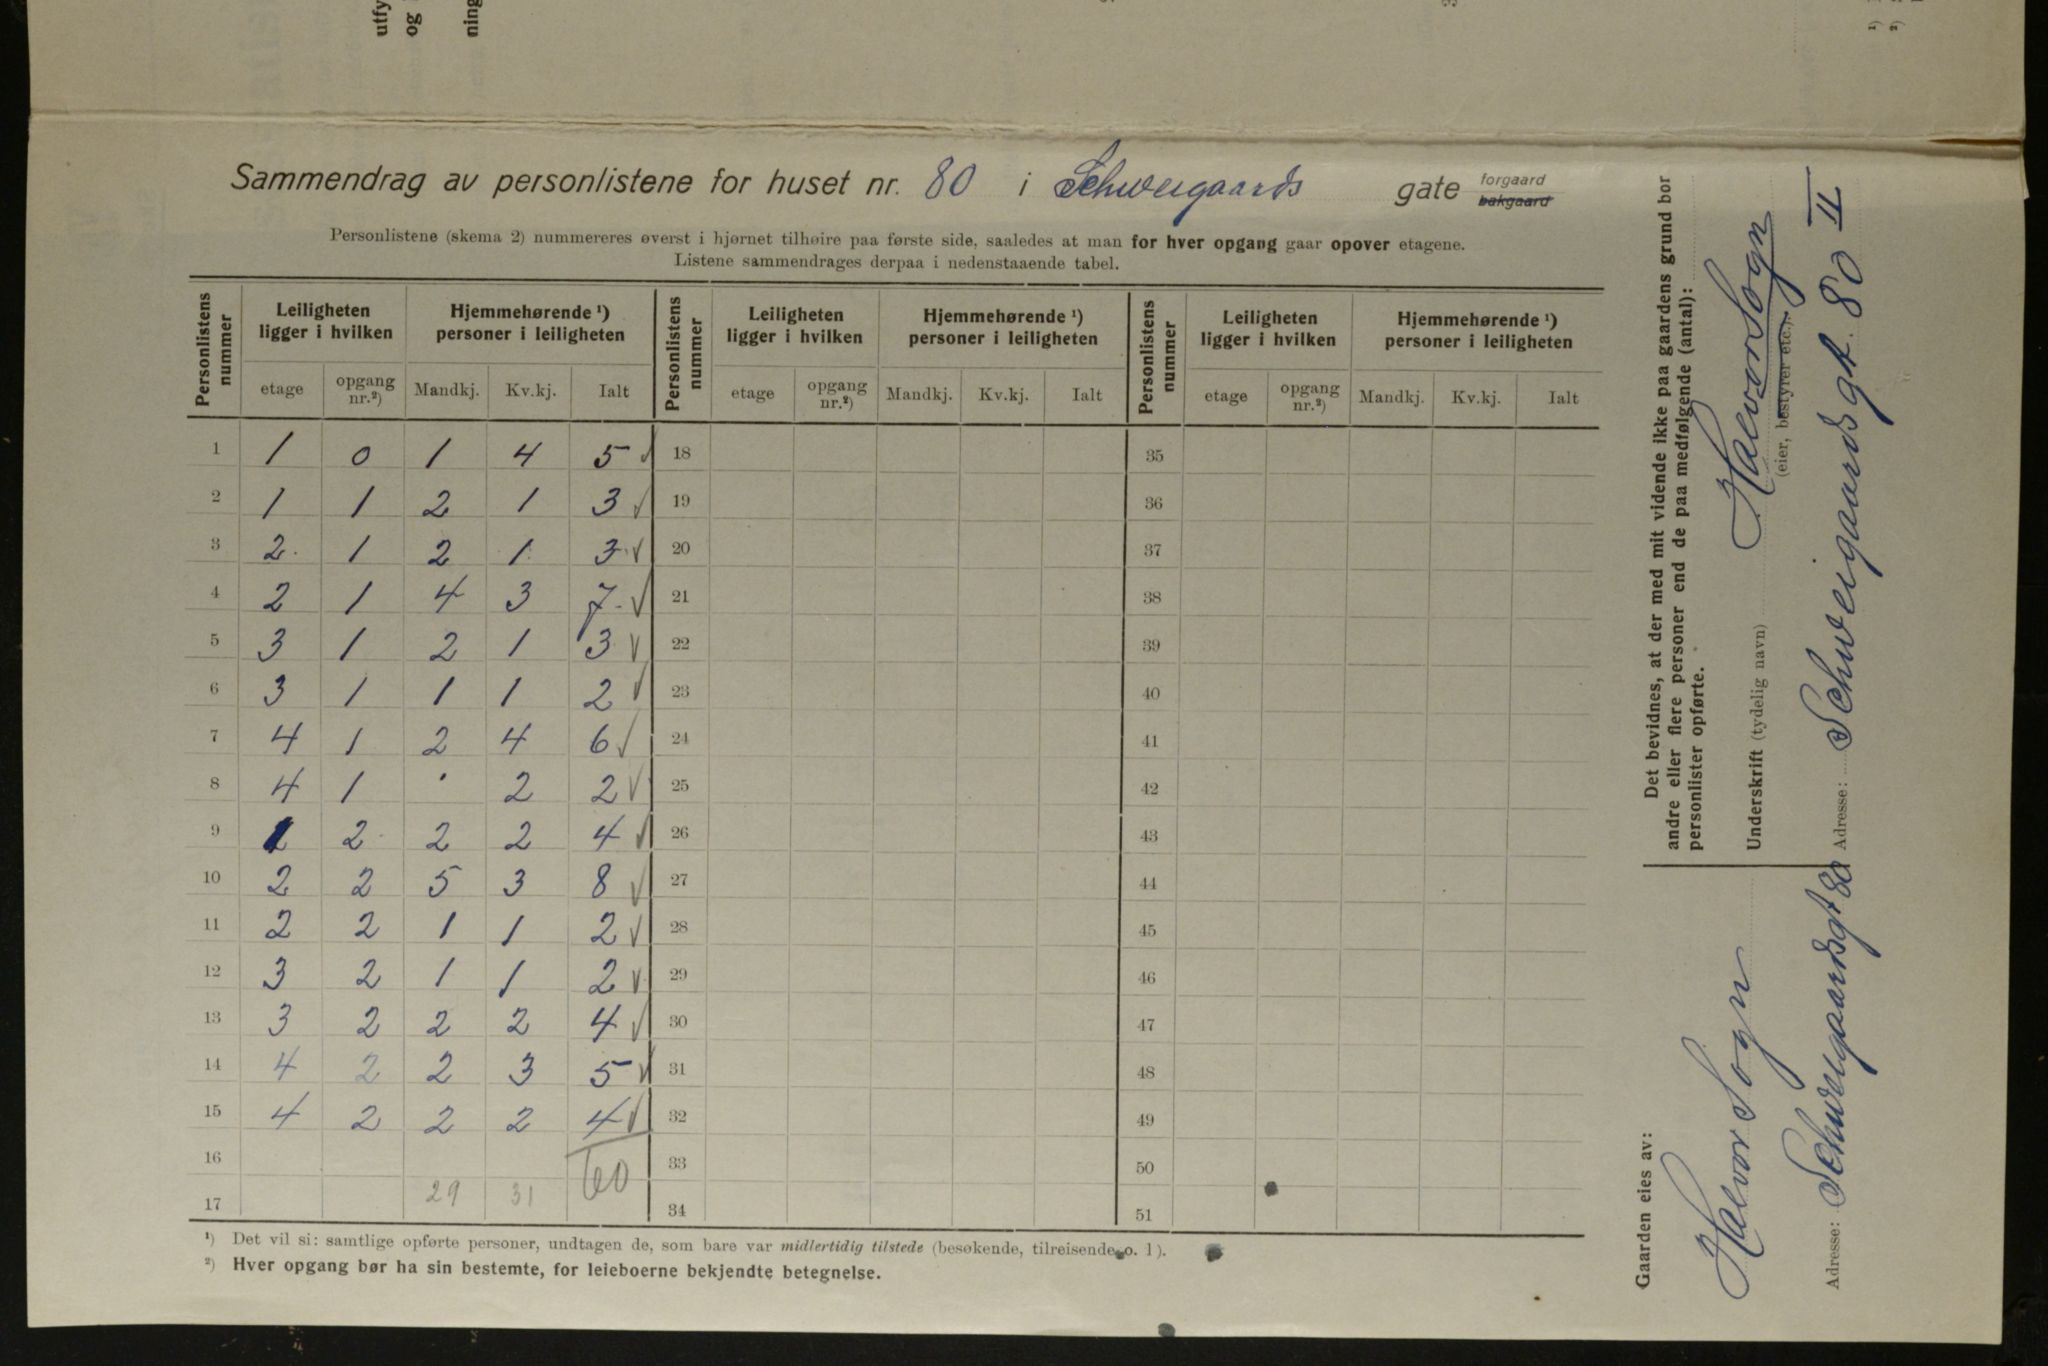 utfy
og
ning
Sammendrag av personlistene for huset nr. 80 i Schweigaards gate forgaard bakgaard
Personlistene (skema 2) nummereres øverst i hjørnet tilhøire paa første side, saaledes at man for hver opgang gaar opover etagene.
Listene sammendrages derpaa i nedenstaaende tabel.
Personlistens nummer | Leiligheten ligger i hvilken | Hjemmehørende ¹) personer i leiligheten | Personlistens nummer | Leiligheten ligger i hvilken | Hjemmehørende ¹) personer i leiligheten | Personlistens nummer | Leiligheten ligger i hvilken | Hjemmehørende ¹) personer i leiligheten
etage | opgang nr.²) | Mandkj. | Kv.kj. | Ialt | etage | opgang nr.²) | Mandkj. | Kv.kj. | Ialt | etage | opgang nr.²) | Mandkj. | Kv.kj. | Ialt
1 | 1 | 0 | 1 | 4 | 5 ✓ | 18 | 35
2 | 1 | 1 | 2 | 1 | 3 ✓ | 19 | 36
3 | 2. | 1 | 2 | 1 | 3 ✓ | 20 | 37
4 | 2 | 1 | 4 | 3 | 7 ✓ | 21 | 38
5 | 3 | 1 | 2 | 1 | 3 ✓ | 22 | 39
6 | 3 | 1 | 1 | 1 | 2 ✓ | 23 | 40
7 | 4 | 1 | 2 | 4 | 6 ✓ | 24 | 41
8 | 4 | 1 | · | 2 | 2 ✓ | 25 | 42
9 | 1 | 2 | 2 | 2 | 4 ✓ | 26 | 43
10 | 2 | 2 | 5 | 3 | 8 ✓ | 27 | 44
11 | 2 | 2 | 1 | 1 | 2 ✓ | 28 | 45
12 | 3 | 2 | 1 | 1 | 2 ✓ | 29 | 46
13 | 3 | 2 | 2 | 2 | 4 ✓ | 30 | 47
14 | 4 | 2 | 2 | 3 | 5 ✓ | 31 | 48
15 | 4 | 2 | 2 | 2 | 4 ✓ | 32 | 49
16 | 60 | 33 | 50
17 | 29 | 31 | 34 | 51
¹) Det vil si: samtlige opførte personer, undtagen de, som bare var midlertidig tilstede (besøkende, tilreisende o. l).
²) Hver opgang bør ha sin bestemte, for leieboerne bekjendte betegnelse.
Det bevidnes, at der med mit vidende ikke paa gaardens grund bor
andre eller flere personer end de paa medfølgende (antal):
personlister opførte.
Underskrift (tydelig navn) Halvor Sogn
(eier, bestyrer etc.).
Adresse: Schweigaards gt. 80 II
Gaarden eies av:
Halvor Sogn
Adresse: Schweigaardsgt 80